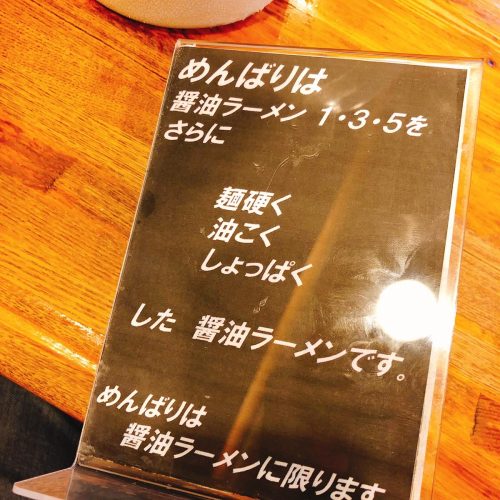 めんばりは
醤油ラーメン 1・3・5を
さらに
麺硬く
油こく
しょっぱく
した 醤油ラーメンです。
めんばりは
醤油ラーメンに限ります